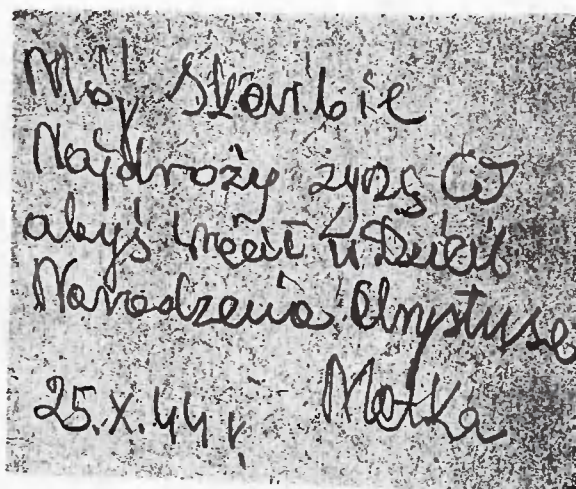 Mój Skarbie
Najdroży życzę Ci
abyś wrócił w Dzień
Narodzenia Chrystusa
25.X.44 r. Matka